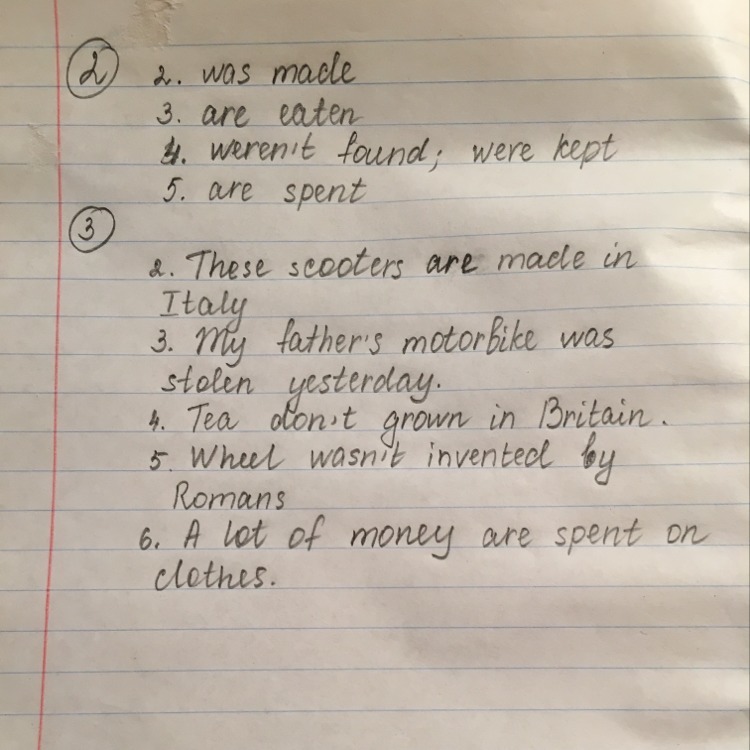 2 2. was made
3. are eaten
4. weren't found; were kept
5. are spent
3
2. These scooters are made in
Italy
3. My father's motorbike was
stolen yesterday.
4. Tea don't grown in Britain.
5. Wheel wasn't invented by
Romans
6. A lot of money are spent on
clothes.